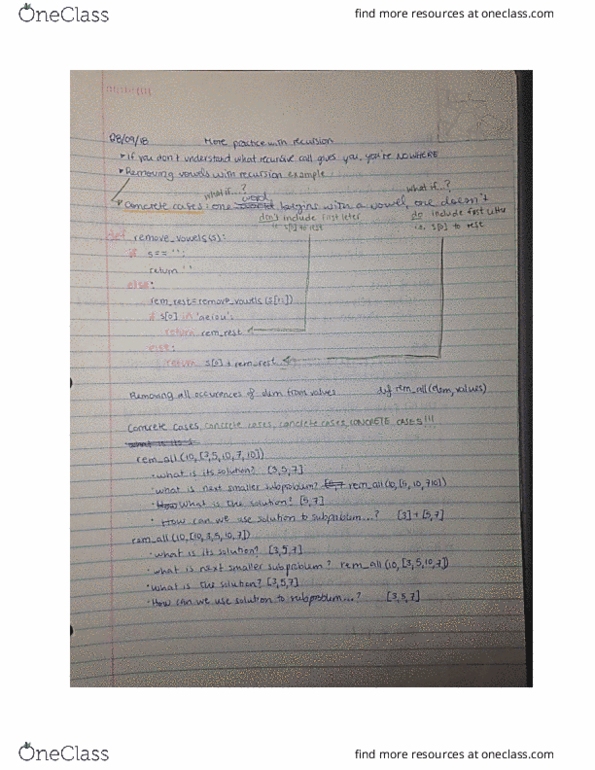 OneClass
find more resources at oneclass.com
08/09/18 More practice with recursion
If you don't understand what recursive call gives you, you're NOWHERE
Removing vowels with recursion example
what if...? what if...?
concrete cases: one word begins with a vowel, one doesn't
don't include first letter do include first letter
s[0] to rest i.e. s[0] to rest
def remove_vowels(s):
if s == '':
return ''
else:
rem_rest=remove_vowels(s[1:])
if s[0] in 'aeiou':
return rem_rest
else:
return s[0] + rem_rest
Removing all occurences of elem from values def rem_all(elem, values)
Concrete cases, concrete cases, concrete cases, CONCRETE CASES!!!
what is its s
rem_all(10, [3,5,10,7,10])
what is its solution? [3,5,7]
what is next smaller subproblem? rem_all(10, [5,10,7,10])
How What is the solution? [5,7]
How can we use solution to subproblem...? [3] + [5,7]
rem_all(10, [10,3,5,10,7])
what is its solution? [3,5,7]
what is next smaller subproblem? rem_all(10, [3,5,10,7])
What is the solution? [3,5,7]
How can we use solution to subproblem...? [3,5,7]
OneClass
find more resources at oneclass.com